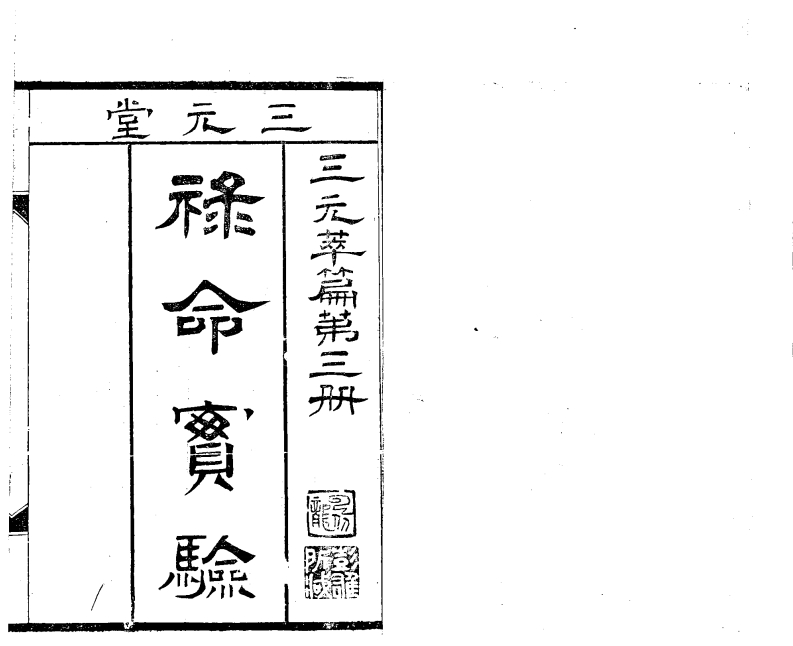 三元堂
三元萃篇第三册
祿命實驗